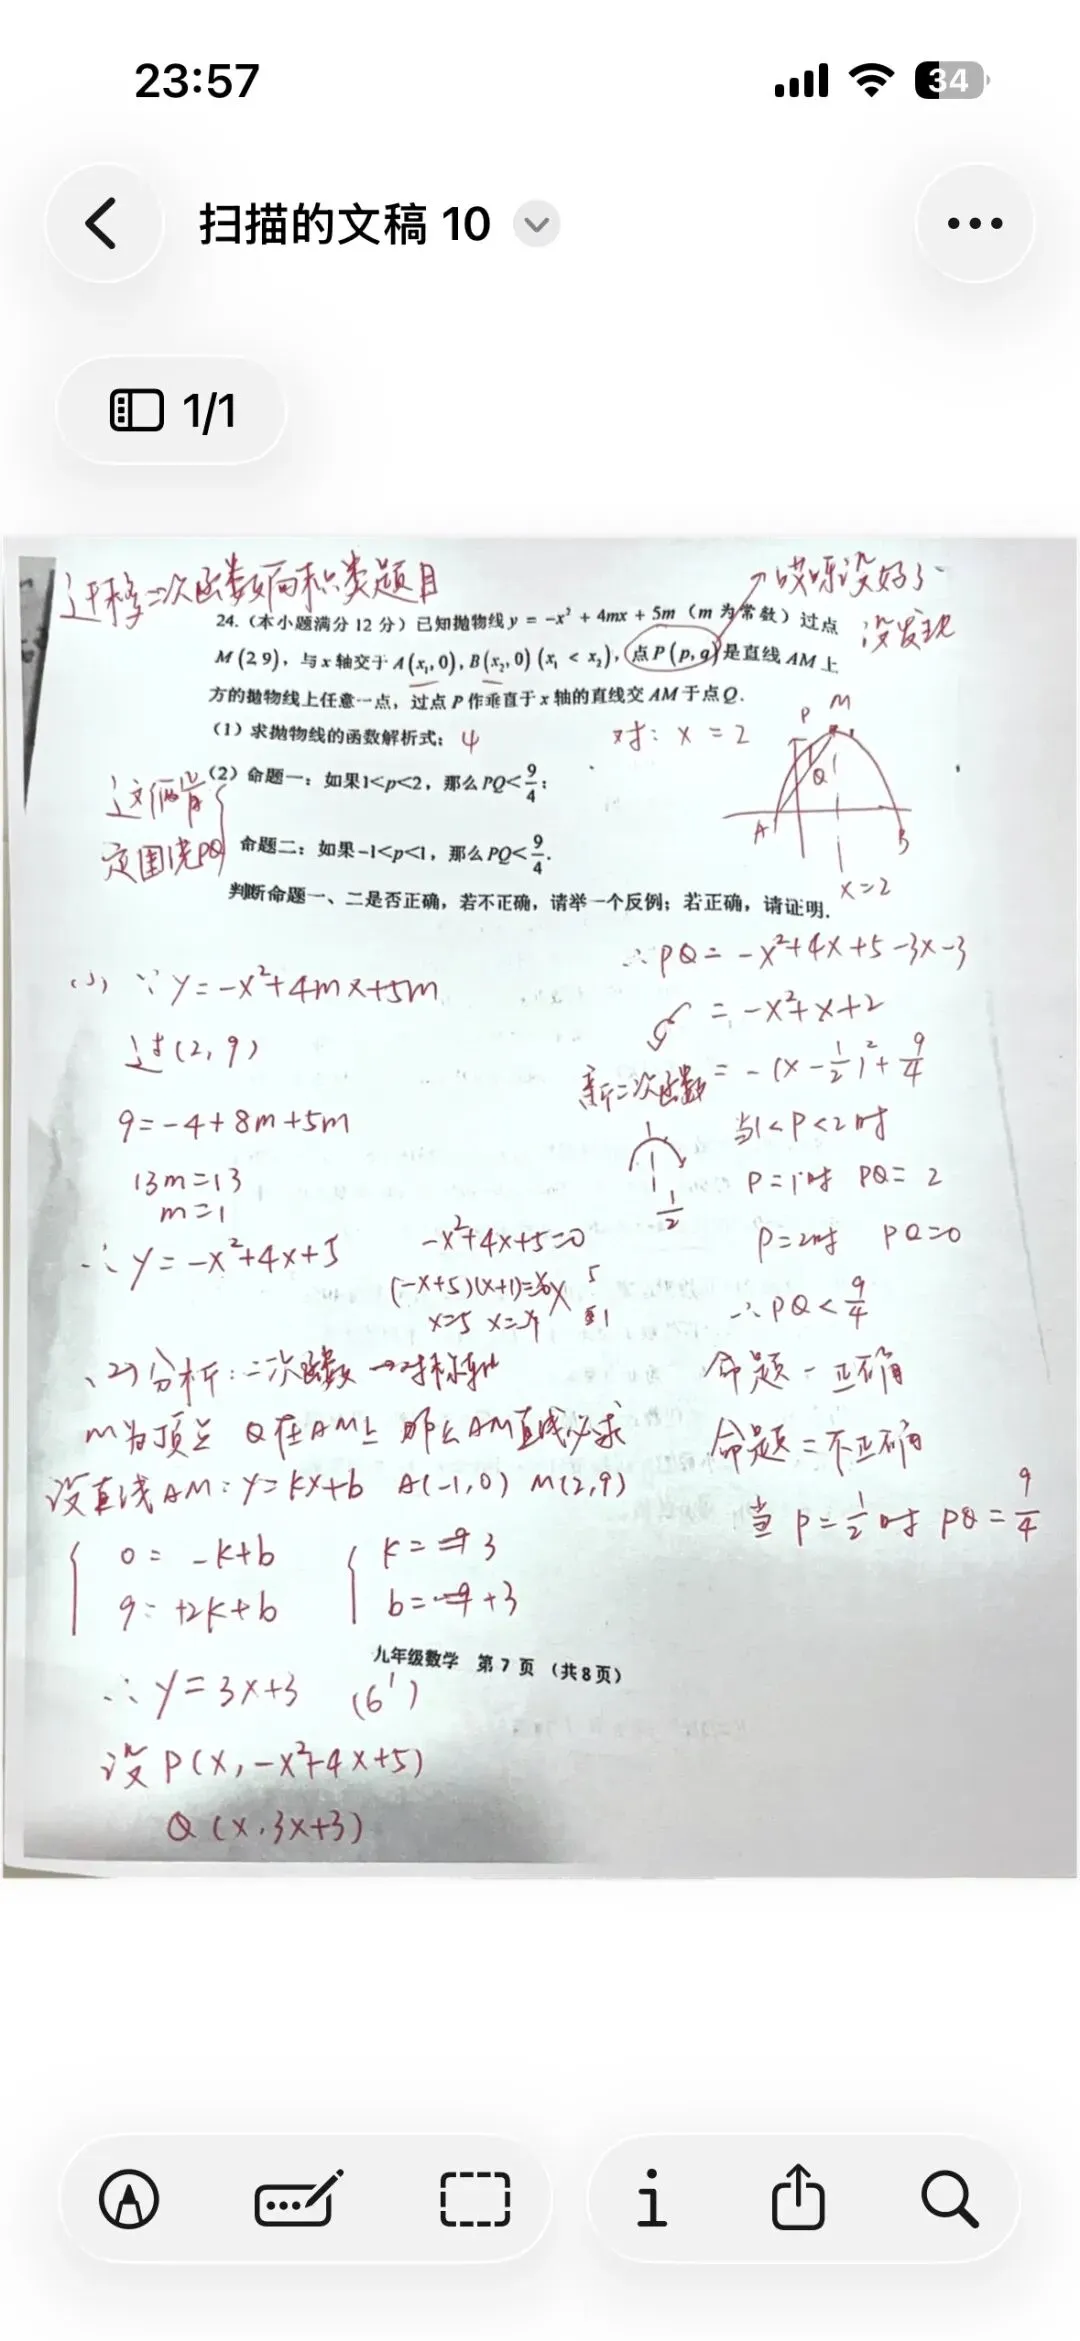 23:57
34
扫描的文稿 10
1/1
迁移二次函数面积类题目
哎呀没好了
没发现
24.（本小题满分 12 分）已知抛物线 y = -x² + 4mx + 5m（m 为常数）过点
M (2 9)，与 x 轴交于 A(x₁,0), B(x₂,0) (x₁ < x₂)，点 P(p,q)是直线 AM 上
方的抛物线上任意一点，过点 P 作垂直于 x 轴的直线交 AM 于点 Q.
（1）求抛物线的函数解析式； 4
对: x = 2
（2）命题一：如果1<p<2，那么 PQ<9/4；
命题二：如果 -1<p<1，那么 PQ<9/4.
判断命题一、二是否正确，若不正确，请举一个反例；若正确，请证明.
这俩肯
定围绕PQ
P M
Q
A B
x=2
(1) ∵ y = -x²+4mx+5m
过(2, 9)
9 = -4+8m+5m
13m=13
m=1
∴ y = -x²+4x+5
-x²+4x+5=0
(-x+5)(x+1)=0
x=5 x=-1
(2) 分析: 二次函数 → 对称轴
M为顶点 Q在AM上 那么AM直线必求
设直线AM: y=kx+b A(-1,0) M(2,9)
0 = -k+b
9 = +2k+b
k = 3
b = +3
九年级数学 第 7 页 （共 8 页）
∴ y = 3x+3 (6')
设 P(x, -x²+4x+5)
Q (x, 3x+3)
∴ PQ = -x²+4x+5-3x-3
= -x²+x+2
新二次函数 = -(x-1/2)²+9/4
1/2
当1<P<2时
P=1时 PQ= 2
P=2时 PQ=0
∴ PQ<9/4
命题一正确
命题二不正确
当 P=1/2时 PQ=9/4